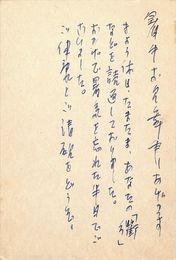 暑中お見舞申しあげます
きょう休日、たまたま、あなたの「衝」
などを読返しておりました。
おかげで暑気を忘れた半日でご
ざいました。
ご健康とご清硯をどうぞ。